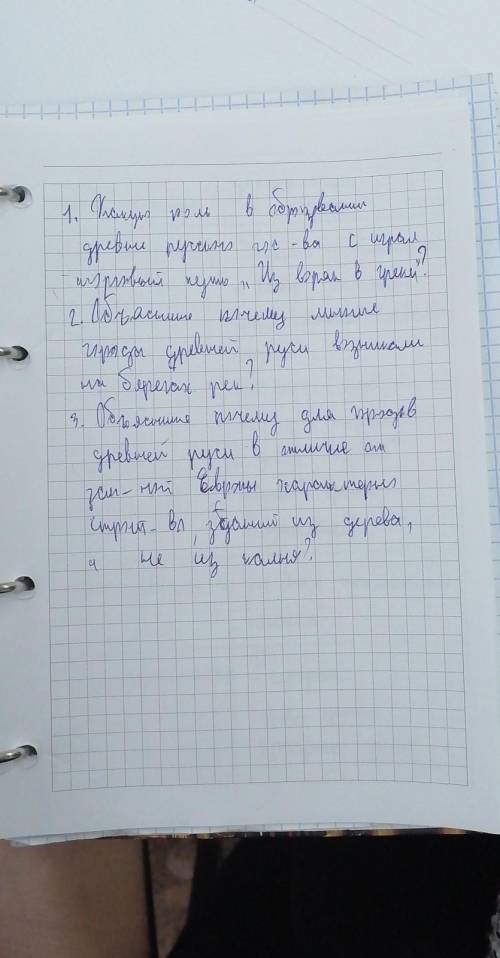 1. Какую роль в образовании
древне русского гос-ва сыграл
торговый путь „Из варяг в греки"?
2. Объясните почему многие
города древней руси возникали
на берегах рек?
3. Объясните почему для городов
древней руси в отличие от
зап-ной Европы характерно
строит-во зданий из дерева,
а не из камня?